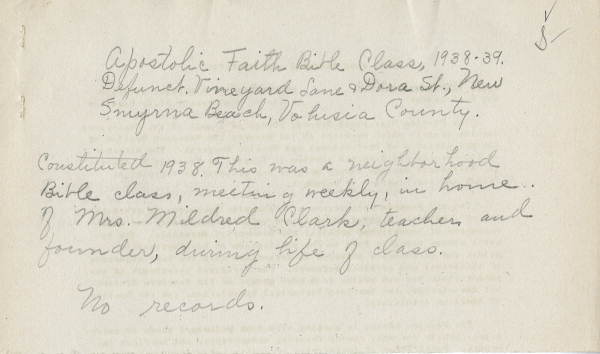 5
Apostolic Faith Bible Class, 1938-39.
Defunct. Vineyard Lane & Dora St., New
Smyrna Beach, Volusia County.
Constituted 1938. This was a neighborhood
Bible class, meeting weekly, in home
of Mrs. Mildred Clark, teacher and
founder, during life of class.
No records.